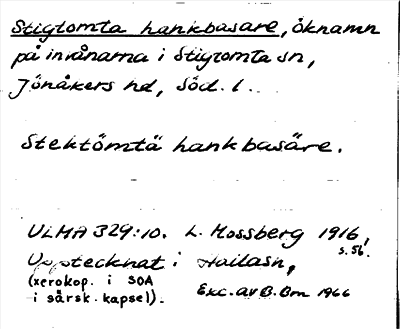 Stigtomta hankbasare, öknamn
på invånarna i Stigtomta sn,
Jönåkers hd, Söd. l.
Stektömtä hankbasäre.
ULMA 329:10. L. Mossberg 1916,
s. 56.
Upptecknat i
(xerokop. i SOA
i särsk. kapsel).
Exc. av B. Bm 1966